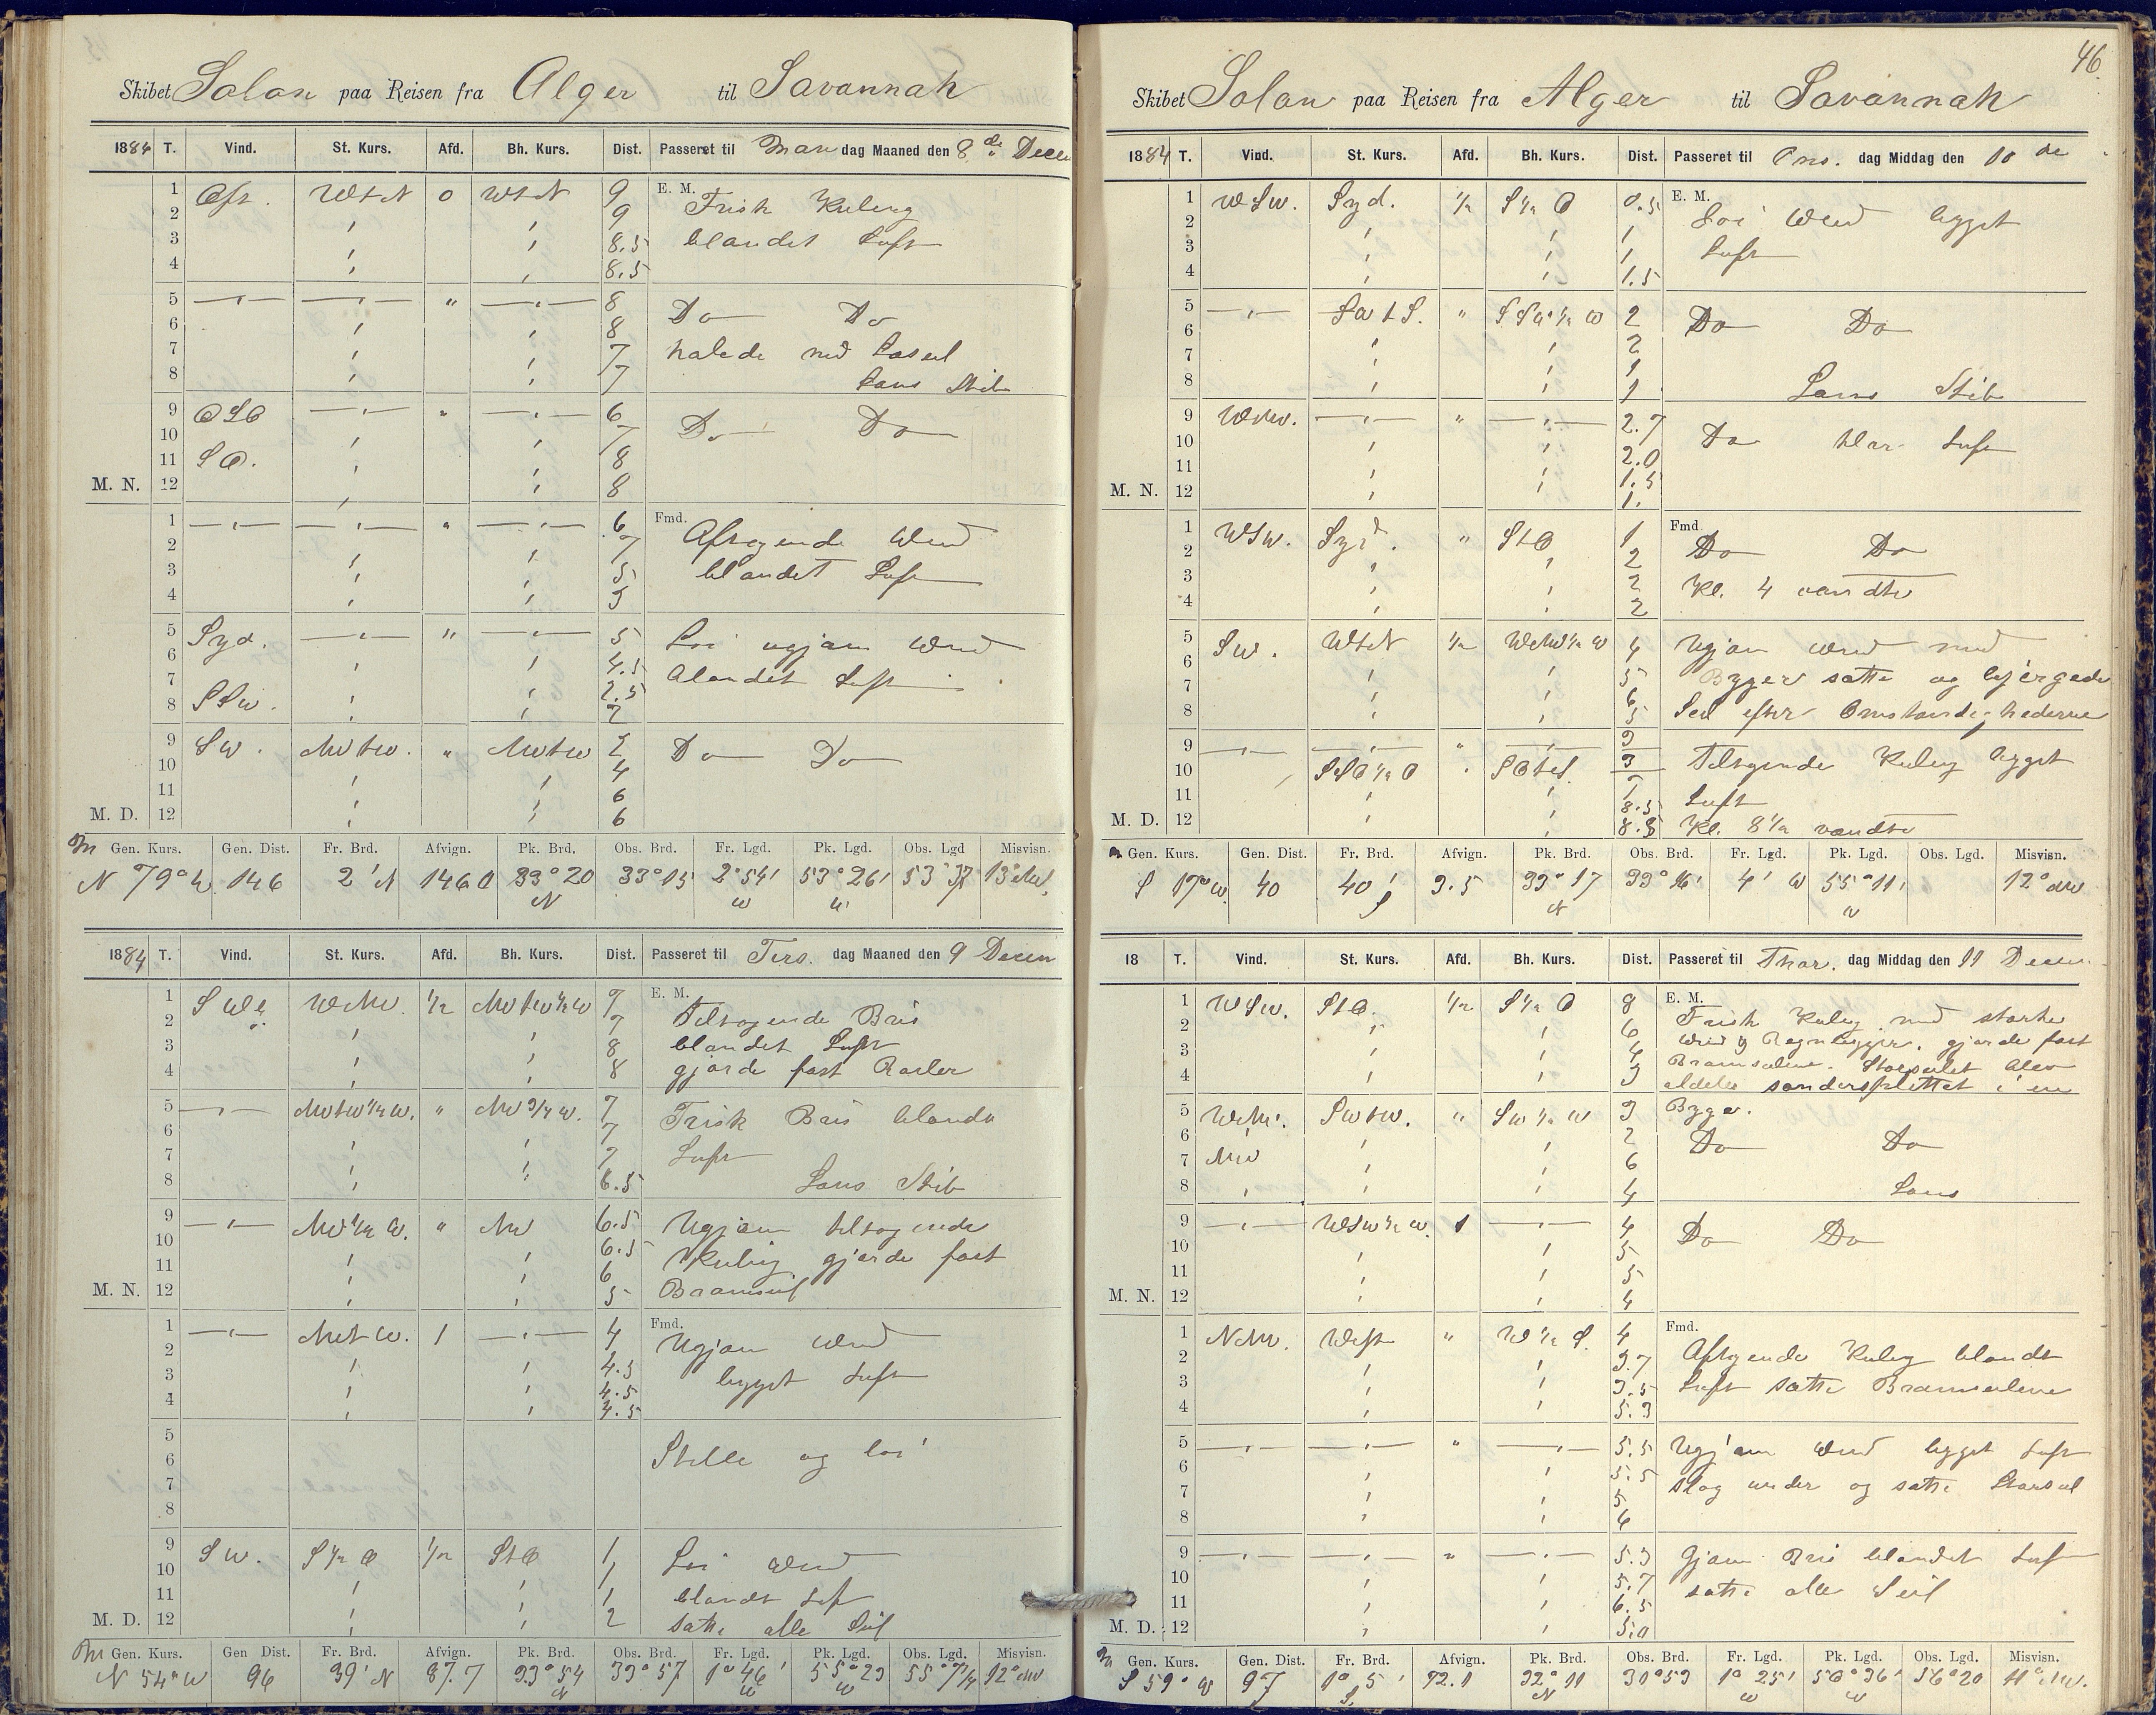 Skibet Solon paa Reisen fra Alger til Savannah
1884 T. Vind. St. Kurs. Afd. Bh. Kurs. Dist. Passeret til Man dag Maaned den 8de Decem
1 Ost. WtN 0 WtN 9 E. M. Frisk Kuling
2 9
3 8.5 blandet Luft
4 8.5
5 8 Do Do
6 8
7 7 halede ned
8 7 Lans Skib
9 OSO 6 Do Do
10 7
11 SO. 8
M. N. 12 8
1 6 Fmd. Aftagende Wind
2 7
3 5 blandet Luft
4 5
5 Syd. " 5 Loi ugjævn Wind
6 4.5
7 2.5 blandet Luft
8 SSw. 2
9 Sw. NWtW. " NWtW 2 Do Do
10 4
11 6
M. D. 12 6
Gen. Kurs. Gen. Dist. Fr. Brd. Afvign. Pk. Brd. Obs. Brd. Fr. Lgd. Pk. Lgd. Obs. Lgd Misvisn.
N 79° W 146 2' N 146 33° 20 N 33° 15 2° 54' W 53° 26' W 53° 37 13° NW
1884 T. Vind. St. Kurs. Afd. Bh. Kurs. Dist. Passeret til Tirs. dag Maaned den 9 Decem
1 WNW. 1/2 NWtW 1/2 W 7 E. M. Tiltagende Bris
2 7
3 8 blandet Luft
4 8 gjorde fast Røiler
5 NWtW 1/2 W. " NW 3/4 W. 7 Frisk Bris blandet
6 7
7 7 Luft
8 6.5 Lans Skib
9 NW 1/2 W. " NW 6.5 Ugjævn tiltagende
10 6.5
11 6 Kuling gjorde fast
M. N. 12 5 Bramseil
1 NWtW. 1 4 Fmd. Ugjævn Wind
2 4.5
3 4.5 bygget Luft
4 4.5
5 Stille og loi
6
7
8
9 SW. S 1/2 O 1/2 StO 1 Loi Wind
10 1
11 1 blandt Luft
M. D. 12 2 satte alle Seil
Gen. Kurs. Gen Dist. Fr. Brd. Afvign. Pk. Brd. Obs. Brd. Fr. Lgd. Pk. Lgd. Obs. Lgd. Misvisn.
N 54° W 96 39' N 87.7 33° 54 N 33° 57 1° 46' W 55° 23 W 55° 7 12° NW
46.
Skibet Solon paa Reisen fra Alger til Savannah
1884 T. Vind. St. Kurs. Afd. Bh. Kurs. Dist. Passeret til Ons. dag Middag den 10 de
1 WSW. Syd. 1/2 S 1/2 O 0.5 E. M. Loi Wind bygget
2 1
3 1 Luft
4 1.5
5 SWtS. " SSW 1/2 W 2 Do Do
6 2
7 1
8 1 Lans Skib
9 WNW. " 2.7 Do klar Luft
10 2.0
11 1.5
M. N. 12 1.
1 WSW. Syd. " StO 1 Fmd. Do Do
2 2
3 2 Kl. 4 vendte
4 2
5 SW. WtN 1/2 WNW 1/2 W 4 Ugjævn Wind med
6 5 Byger satte og bjergede
7 6
8 5 Seil efter Omstændighederne
9 " 3 Tiltagende Kuling bygget
10 SSO 1/2 O SOtS. 3
11 7 8.5 Luft
M. D. 12 8.5 Kl. 8 1/2 vendte
Gen. Kurs. Gen. Dist. Fr. Brd. Afvign. Pk. Brd. Obs. Brd. Fr. Lgd. Pk. Lgd. Obs. Lgd. Misvisn.
S 17° W. 40 40' S 3.5 33° 17 N 33° 16' 4' W 55° 11' W 12° NW
18 T. Vind. St. Kurs. Afd. Bh. Kurs. Dist. Passeret til Thor. dag Middag den 11 Decem
1 WSW. StO. 1/2 S 1/2 O 8 E. M. Frisk Kuling med stærke
2 6 Wind og Regnbyger. gjorde fast
3 4 Bramseilene. Storseilet blev
4 3 aldeles sondersplittet i en
5 WNW. SWtW. " SW 1/2 W 3 Byge.
6 2 Do Do
7 NW 6
8 4 Lans
9 WSW 1/2 W. 1 4 Do Do
10 5
11 5
M. N. 12 4
1 NNW. West " W 1/2 S. 4 Fmd. Aftagende Kuling blandt
2 3.7
3 3.5 Luft satte Bramseilene
4 5.3
5 " 5.5 Ugjævn Wind bygget Luft
6 5.5
7 5 slog under og satte Storseil
8 6
9 5.3 Gjævn Bris blandet Luft
10 5.7 satte alle Seil
11 6.5
M. D. 12 5.0
Gen. Kurs. Gen. Dist. Fr. Brd. Afvign. Pk. Brd. Obs. Brd. Fr. Lgd. Pk. Lgd. Obs. Lgd. Misvisn.
S 59° W 97 1° 5' S. 72.1 32° 11 N 30° 53 1° 25' W 56° 36' W 56° 20 11° NW.